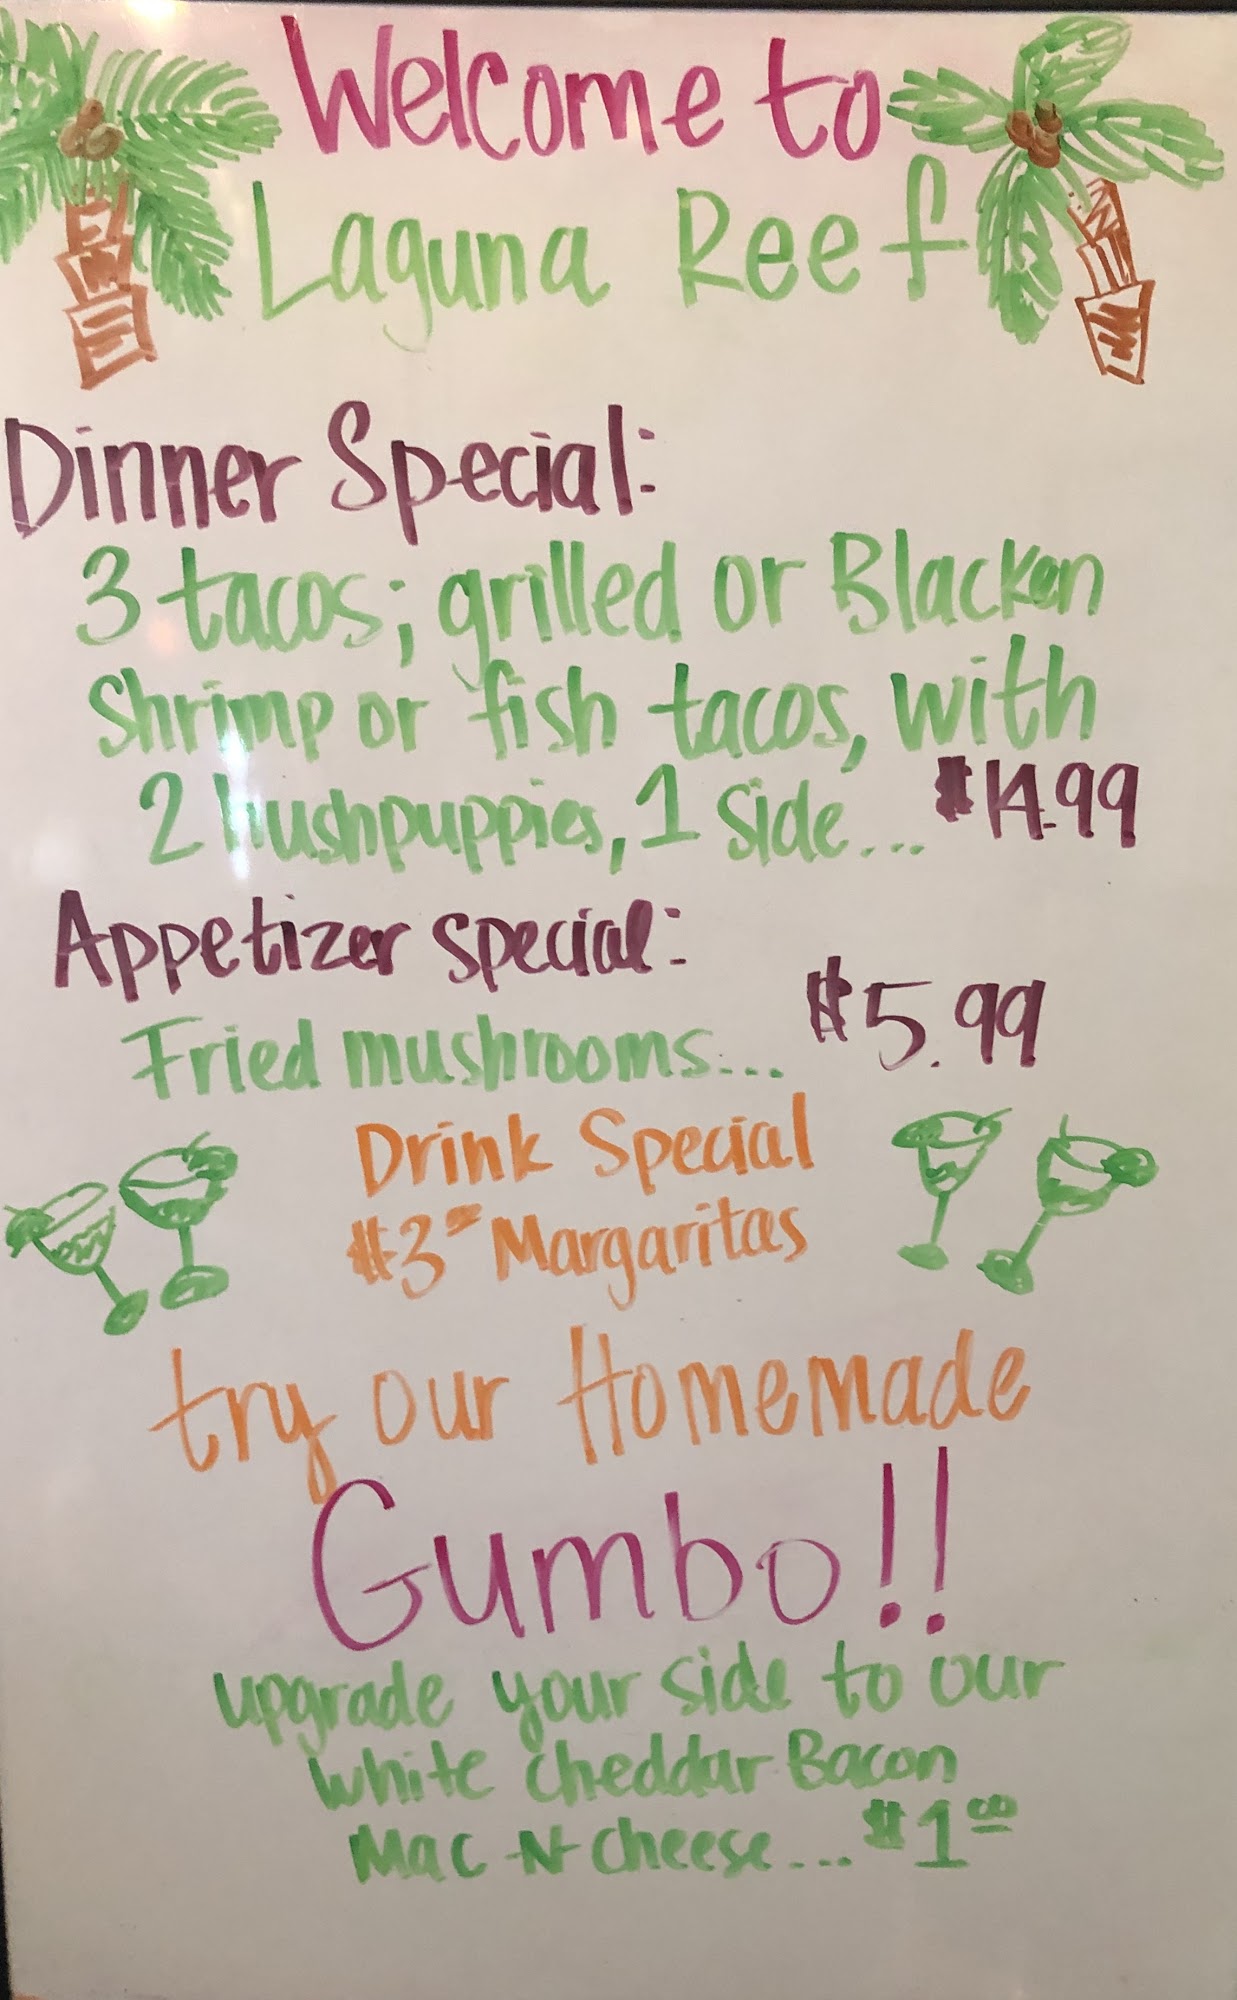 Welcome to
Laguna Reef
Dinner Special:
3 tacos; grilled or Blacken
Shrimp or fish tacos, with
2 hushpuppies, 1 side... $14.99
Appetizer special:
Fried mushrooms... $5.99
Drink Special
$3°° Margaritas
try our Homemade
Gumbo!!
upgrade your side to our
white cheddar Bacon
Mac-N-cheese... $1°°